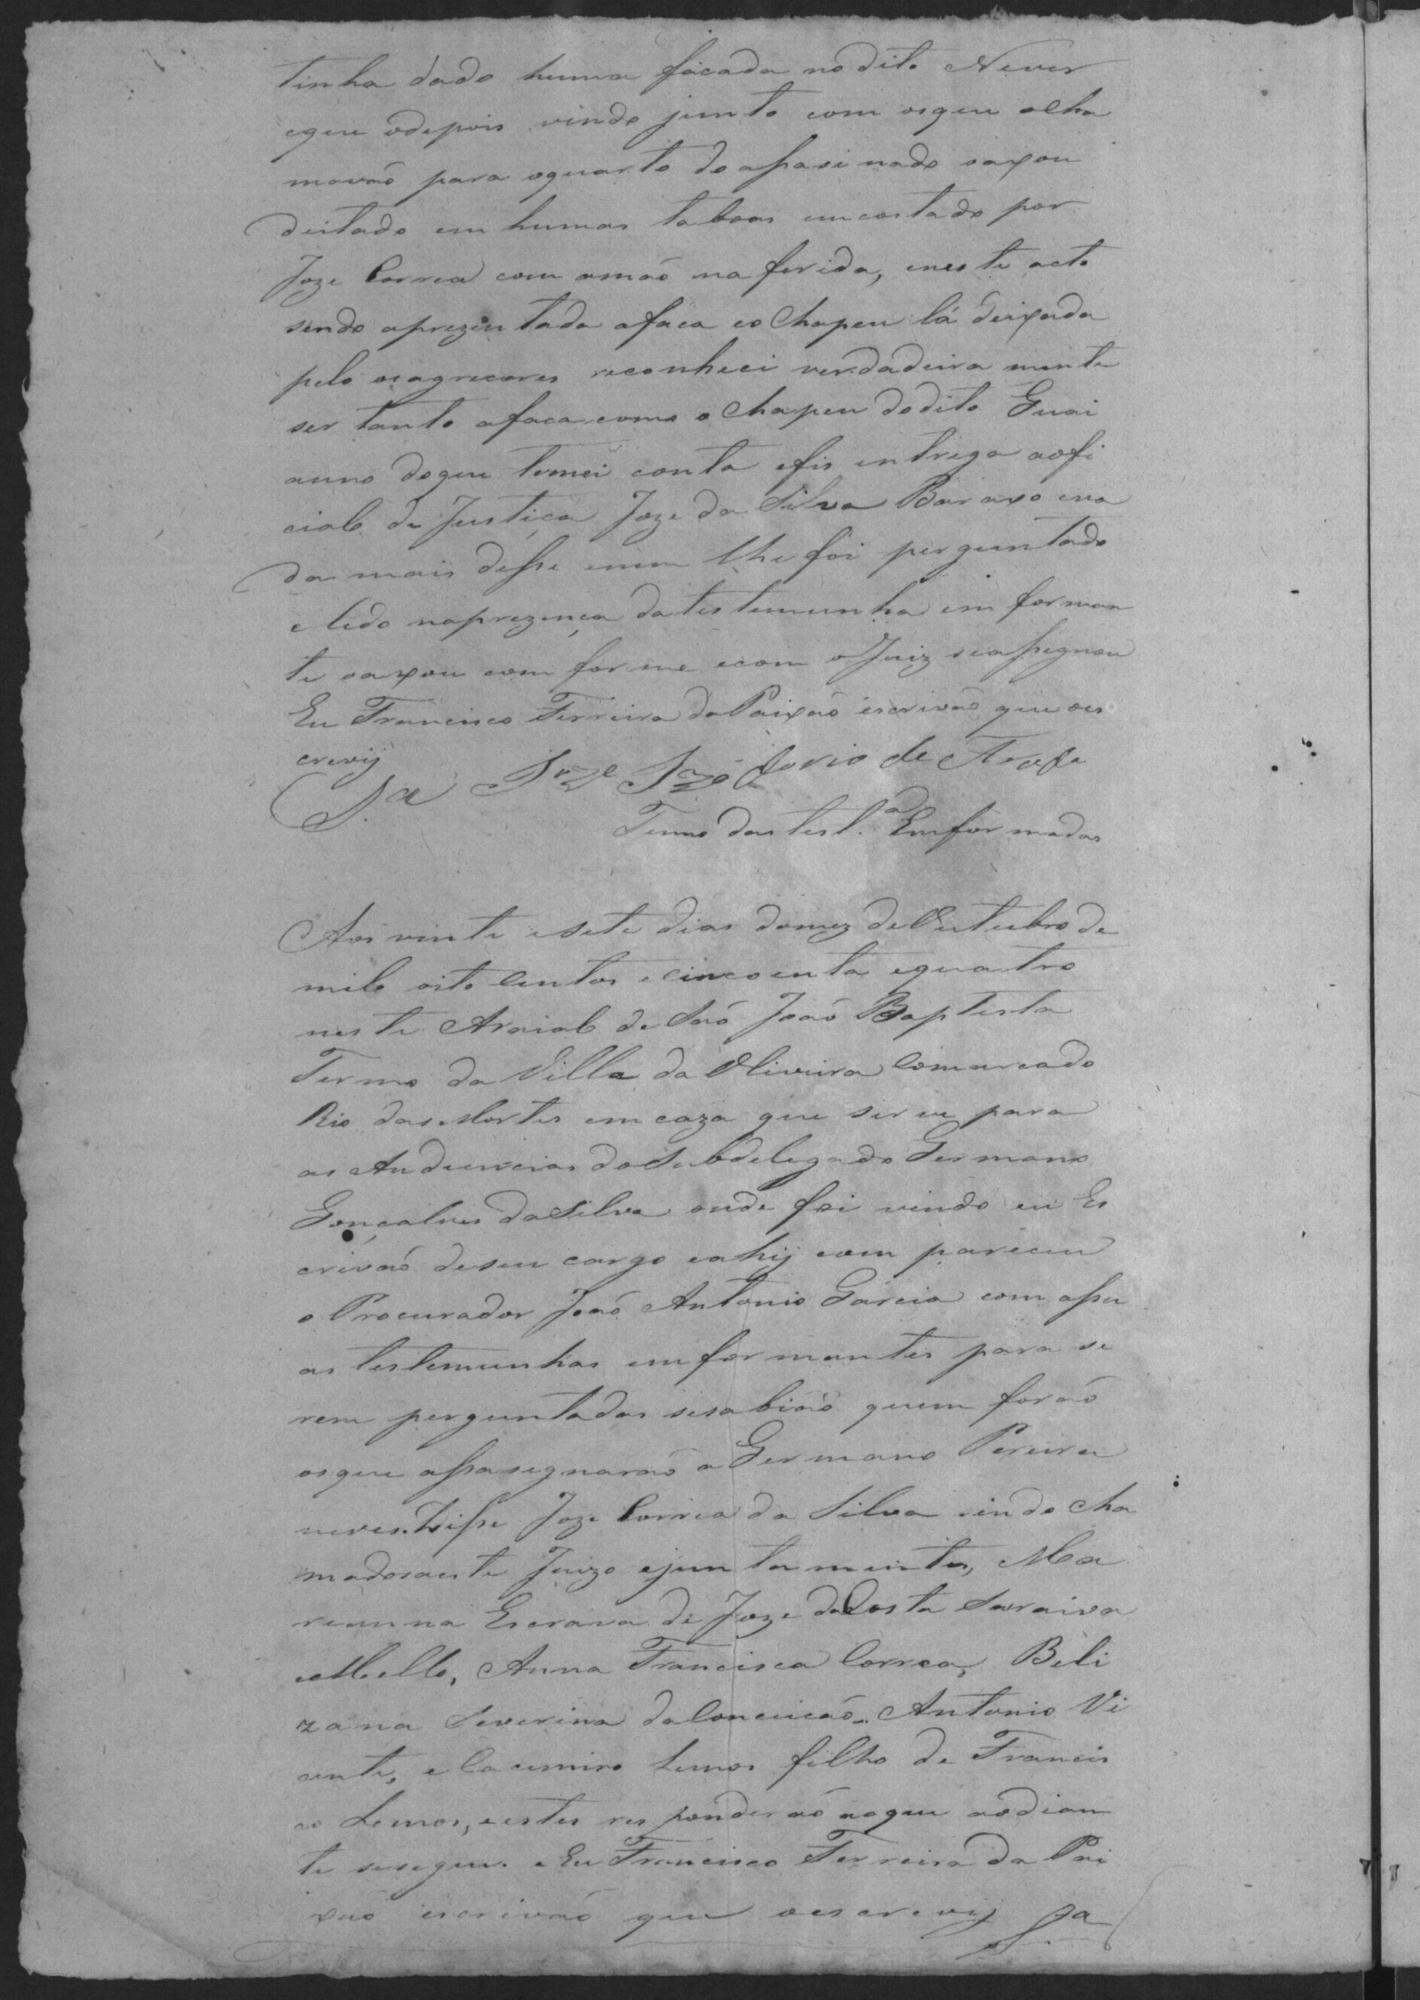 tinha dado huma facada no dito Neves
eque odepois vindo junto com osque olha
mavaõ para oquarto do aſsasinado oaxou
deitado em humas taboas emcostado por
Joze Correa com amaõ na ferida, eneste acto
sendo aprezentada afaca eo Chapeu lá deixada
pelo osagrecores reconheci verdadeira mente
ser tanto afaca como o Chapeu dodito Guai
anno doque tomei conta efis entrega aofi
cial de Justiça Joze da Silva Baraxo ena
da mais deſse enem lhe foi perguntado
e lido naprezença datestemunha em forman
te oaxou com forme ecom o Juiz seaſsignou
Eu Francisco Ferreira da Paixaõ escrivaõ que oes
crevij
Sa
Termo das test.as Emformadas
Aos vinte esete dias domez de Outubro de
mil oito Centos ecincoenta equatro
neste Araial de Saõ Joaõ Baptista
Termo da Villa da Oliveira Comarcado
Rio das Mortes em caza que serve para
as Audiencias do Subdelegado Germano
Gonçalves da Silva onde foi vindo eu Es
crivaõ deseu cargo eahij com pareceu
o Procurador Joaõ Antonio Garcia com
as testemunhas emformantes para se
rem perguntadas sesabiaõ quem foraõ
osque aſsasignaraõ a Germano Pereira
neves. Diſse Joze Correa da Silva sendo cha
madoaeste Juizo ejuntamente, Ma
reanna Escrava de Joze da Costa Saraiva
eMello, Anna Francisca Correa, Beli
zana Severina da Conceicaõ. Antonio Vi
cente, e Cacimiro Lemos filho de Francis
co Lemos, eestes responderaõ aoque aodian
te sesegue. e Eu Francisco Ferreira da Pai
xaõ escrivaõ que oescrevij